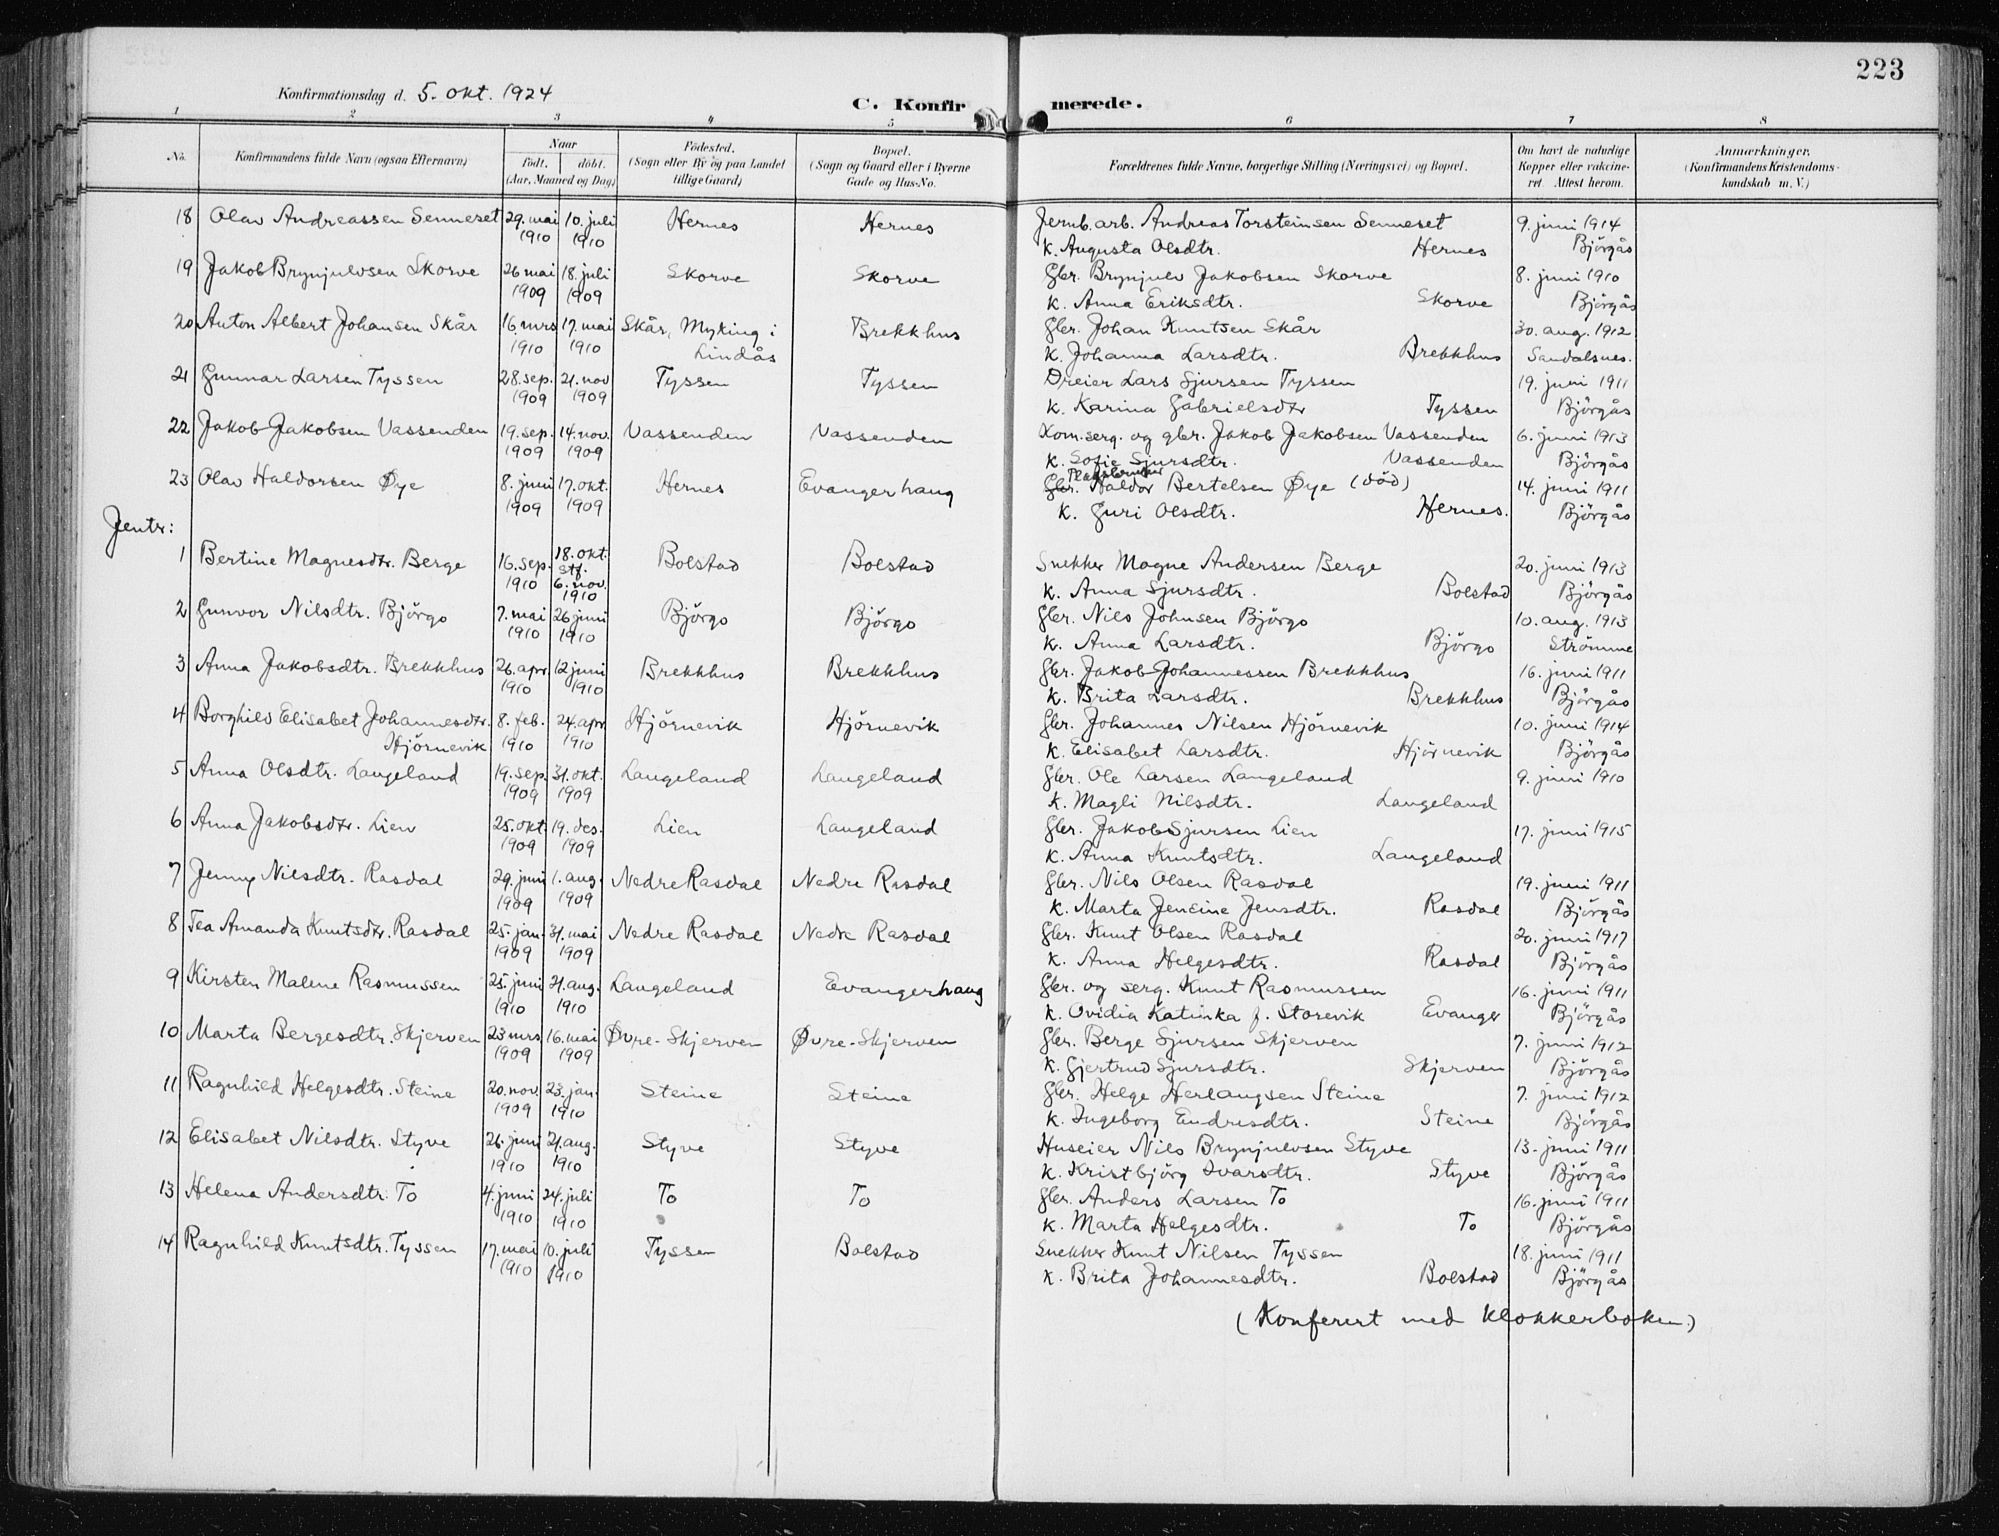 223
Konfirmationsdag d. 5. okt. 1924
C. Konfirmerede.
1 2 3 4 5 6 7 8
No. Konfirmandens fulde Navn (ogsaa Efternavn) Naar født. døbt. (Aar, Maaned og Dag) Fødested. (Sogn eller By og paa Landet tillige Gaard) Bopæl. (Sogn og Gaard eller i Byerne Gade og Hus-No. Forældrenes fulde Navne, borgerlige Stilling (Næringsvei) og Bopæl. Om havt de naturlige Kopper eller vakcineret. Attest herom. Anmærkninger. (Konfirmandens Kristendomskundskab m. V.)
18 Olav Andreassen Senneset 29. mai 1910 10. juli 1910 Hernes Hernes Jernb. arb. Andreas Torsteinsen Senneset 9. juni 1914
k. Augusta Olsdtr. Hernes Björgås
19 Jakob Brynjulvsen Skorve 26 mai 1909 18. juli 1909 Skorve Skorve Gbr. Brynjulv Jakobsen Skorve 8. juni 1910
k. Anna Eriksdtr. Skorve Björgås
20 Anton Albert Johansen Skår 16. mrs 1910 17. mai 1910 Skår, Myking i Lindås Brekkhus Gbr. Johan Knutsen Skår 30. aug. 1912
k. Johanna Larsdtr. Brekkhus Sandalsnes.
21 Gunnar Larsen Tyssen 28. sep. 1909 21. nov 1909 Tyssen Tyssen Dreier Lars Sjursen Tyssen 19. juni 1911
k. Karina Gabrielsdtr Tyssen Björgås
22 Jakob Jakobsen Vassenden 19. sep. 1909 14. nov. 1909 Vassenden Vassenden Kom. serg. og gbr. Jakob Jakobsen Vassenden 6. juni 1913
k. Sofie Sjursdtr. Vassenden Björgås
23 Olav Haldorsen Øye 8. juni 1909 17. okt. 1909 Hernes Evangerhaug Gbr. Haldor Bertelsen Øye (död) 14. juni 1911
k. Guri Olsdtr. Hernes. Björgås
Jentr:
1 Bertine Magnesdtr. Berge 16. sep. 1910 18. okt. stf. 6. nov. 1910 Bolstad Bolstad Snekker Magne Andersen Berge 20. juni 1913
k. Anna Sjursdtr. Bolstad Björgås
2 Gunvor Nilsdtr. Björgo 7. mai 1910 26 juni 1910 Björgo Björgo Gbr. Nils Johnsen Björgo 10. aug. 1913
k. Anna Larsdtr. Björgo Strömme
3 Anna Jakobsdtr. Brekkhus 26. apr. 1910 12 juni 1910 Brekkhus Brekkhus Gbr. Jakob Johannessen Brekkhus 16. juni 1911
k. Brita Larsdtr. Brekkhus Björgås
4 Borghild Elisabet Johannesdtr. Hjörnevik 8. feb. 1910 24. apr 1910 Hjörnevik Hjörnevik Gbr. Johannes Nilsen Hjörnevik 10. juni 1914
k. Elisabet Larsdtr. Hjörnevik Björgås
5 Anna Olsdtr. Langeland 19. sep. 1909 31. okt. 1909 Langeland Langeland Gbr. Ole Larsen Langeland 9. juni 1910
k. Magli Nilsdtr. Langeland
6 Anna Jakobsdtr. Lien 25. okt. 1909 19. des. 1909 Lien Langeland Gbr. Jakob Sjursen Lien 17. juni 1915
k. Anna Knutsdtr. Langeland
7 Jenny Nilsdtr. Rasdal 29. juni 1909 1. aug. 1909 Nedre Rasdal Nedre Rasdal Gbr. Nils Olsen Rasdal 19. juni 1911
k. Marta Jensine Jensdtr. Rasdal Björgås
8 Tea Amanda Knutsdtr. Rasdal 25. jan. 1909 31. mai 1909 Nedre Rasdal Nedre Rasdal Gbr. Knut Olsen Rasdal 20. juni 1917
k. Anna Helgesdtr. Rasdal Björgås
9 Kirsten Malene Rasmussen 25. juni 1910 21. aug. 1910 Langeland Evangerhaug Gbr. og serg. Knut Rasmussen 16. juni 1911
k. Ovidia Katinka f. Storevik Evanger Björgås
10 Marta Bergesdtr. Skjerven 23 mrs 1909 16. mai 1909 Øvre-Skjerven Øvre-Skjerven Gbr. Berge Sjursen Skjerven 7. juni 1912
k. Gjertrud Sjursdtr. Skjerven Björgås
11 Ragnhild Helgesdtr. Steine 20. nov. 1909 23. jan. 1910 Steine Steine Gbr. Helge Herlaugsen Steine 7. juni 1912
k. Ingeborg Endresdtr. Steine Björgås
12 Elisabet Nilsdtr. Styve 26. juni 1910 21. aug. 1910 Styve Styve Huseier Nils Brynjulvsen Styve 13. juni 1911
k. Kristbjörg Ivarsdtr. Styve Björgås
13 Helena Andersdtr. To 4. juni 1910 24. juli 1910 To To Gbr. Anders Larsen To 16. juni 1911
k. Marta Helgesdtr. To Björgås
14 Ragnhild Knutsdtr. Tyssen 17. mai 1910 10. juli 1910 Tyssen Bolstad Snekker Knut Nilsen Tyssen 18. juni 1911
k. Brita Johannesdtr. Bolstad Björgås
(Konferert med klokkerboken)